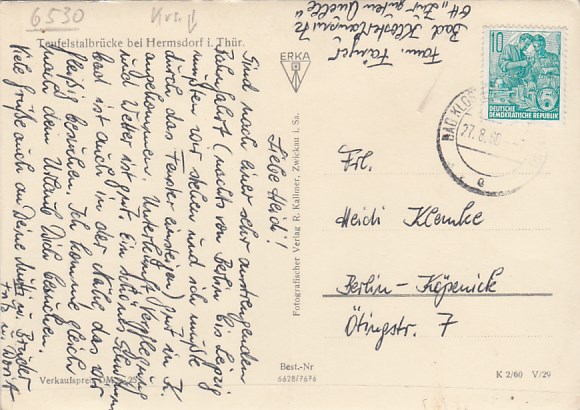 6530
Teufelstalbrücke bei Hermsdorf i. Thür.
Fam. Fänger
Bad Klosterlausnitz
"Zur guten Quelle"
Liebe Heidi!
Sind nach einer sehr anstrengenden
Bahnfahrt (nachts von Berlin bis Leipzig
mußten wir stehen und ich mußte
durch das Fenster einsteigen) gut in K.
angekommen. Unterkunft, Verpflegung
und Wetter ist gut. Ein schönes Schwimm-
bad ist auch in der Nähe, das wir
fleißig besuchen. Ich komme gleich
nach dem Urlaub Dich besuchen.
Viele Grüße auch an Deine Mutti u. Bruder
Fritz u. Dorit
ERKA
Fotografischer Verlag R. Kallmer, Zwickau i. Sa.
10
DEUTSCHE
DEMOKRATISCHE REPUBLIK
BAD KLO
27.8.60
e
Frl.
Heidi Klemke
Berlin-Köpenick
Ötingstr. 7
Verkaufspreis DM
Best.-Nr
6628/7676
K 2/60 V/29